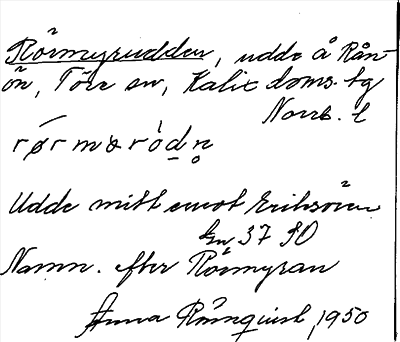 Rörmyrudden, udde å Rån-
ön, Töre sn, Kalix doms. tg
Norrb. l
rørmørodn
Udde mitt emot Eriksören
kn 37 SO
Namn. efter Rörmyran
Anna Rönnquist, 1950